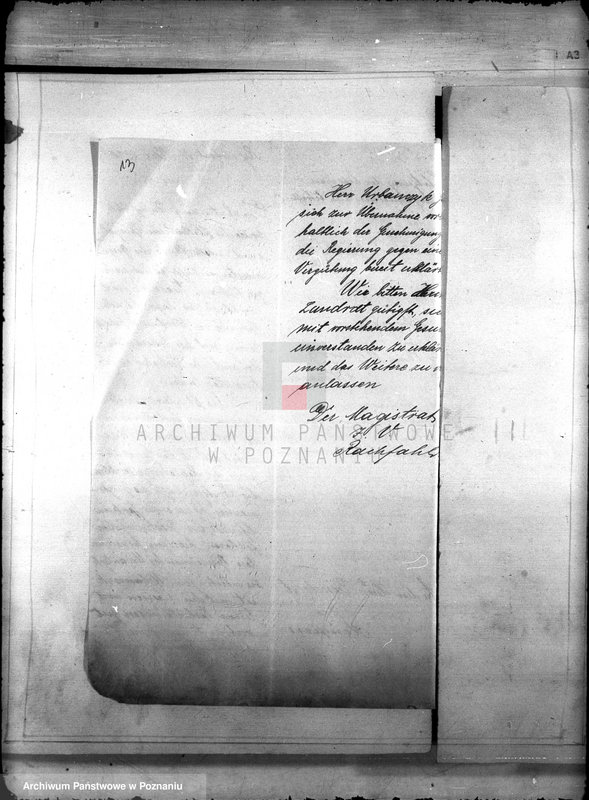 A3
13
Herr Urbanczyk
sich zur Übernahme vor
haltlich der Genehmigung
die Regierung gegen eine
Vergütung bereit erklär
Wir bitten Herrn
Landrat gütigst, sich
mit vorstehendem Gesu
einverstanden zu erklär
und das Weitere zu v
anlassen
Der Magistrat
J. V.
Rachfahl
ARCHIWUM PAŃSTWOWE
W POZNANIU
Archiwum Państwowe w Poznaniu